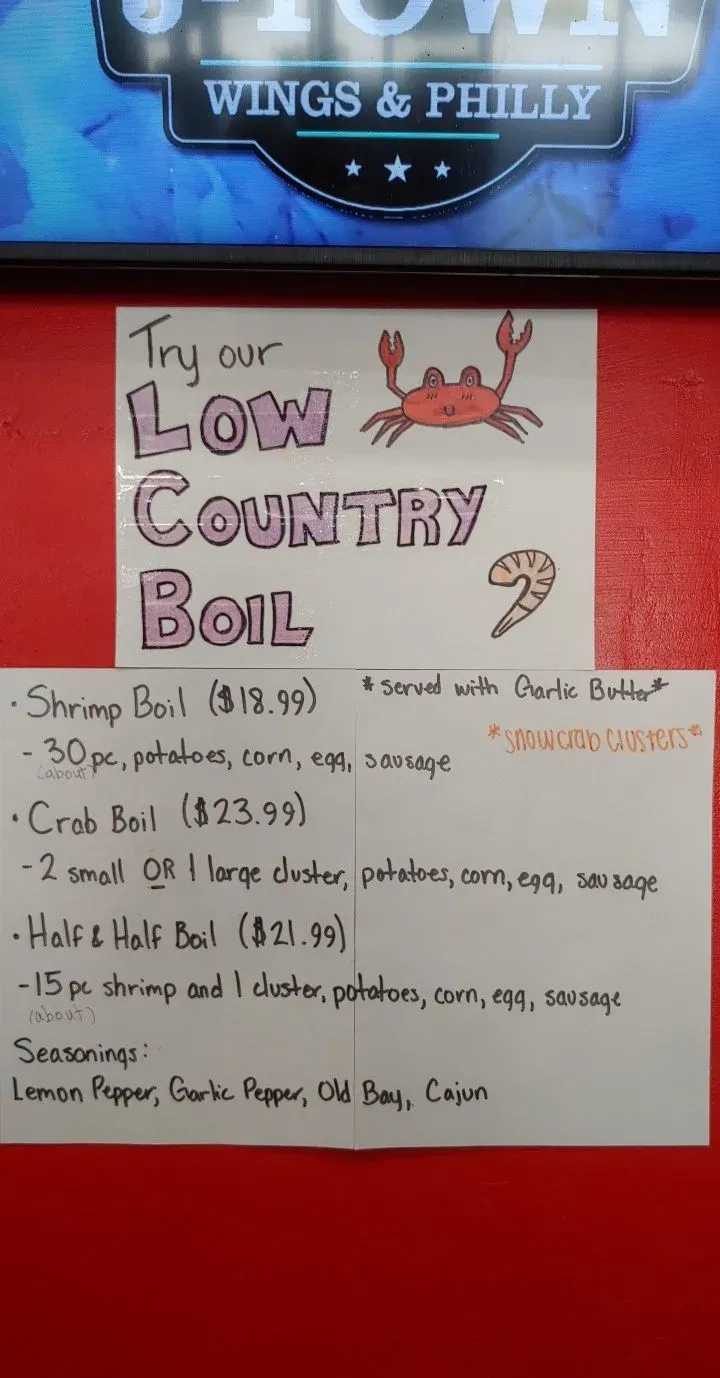 J-TOWN
WINGS & PHILLY
Try our
LOW
COUNTRY
BOIL
· Shrimp Boil ($18.99) *served with Garlic Butter*
*snowcrab clusters*
- 30 pc, potatoes, corn, egg, sausage
(about)
· Crab Boil ($23.99)
- 2 small OR 1 large cluster, potatoes, corn, egg, sausage
· Half & Half Boil ($21.99)
- 15 pc shrimp and 1 cluster, potatoes, corn, egg, sausage
(about)
Seasonings:
Lemon Pepper, Garlic Pepper, Old Bay, Cajun